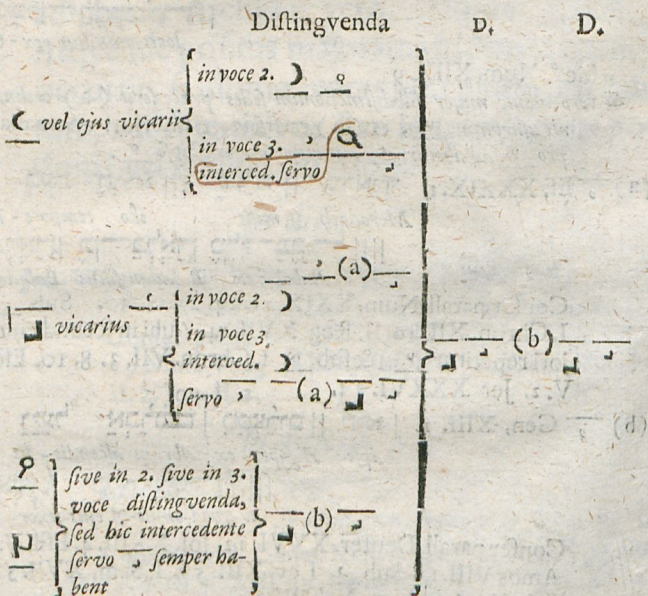 Diſtingvenda D. D.
in voce 2.
vel ejus vicarii
in voce 3.
interced. ſervo
(a)
vicarius in voce 2.
in voce 3
interced.
ſervo (a)
(b)
ſive in 2. ſive in 3.
voce diſtingvenda,
ſed hic intercedente (b)
ſervo ſemper ha-
bent